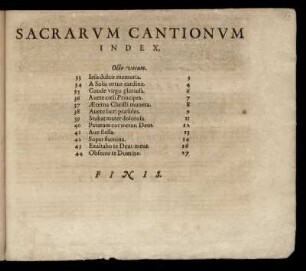 SACRARVM CANTIONVM
INDEX.
Octo vocum.
33 Iesu dulcis memoria. 3
34 A Solis ortus cardine. 4
35 Gaude virgo gloriosa. 6
36 Auete cœli Principes. 7
37 Æterna Christi munera. 8
38 Auete sacri præsides. 9
39 Stabat mater dolorosa. 11
40 Potatum Deus. 12
41 Aue stella. 13
42 Super flumina. 14
43 Exaltabo te Deus meus. 16
44 Obsecro te Domine. 17
FINIS.